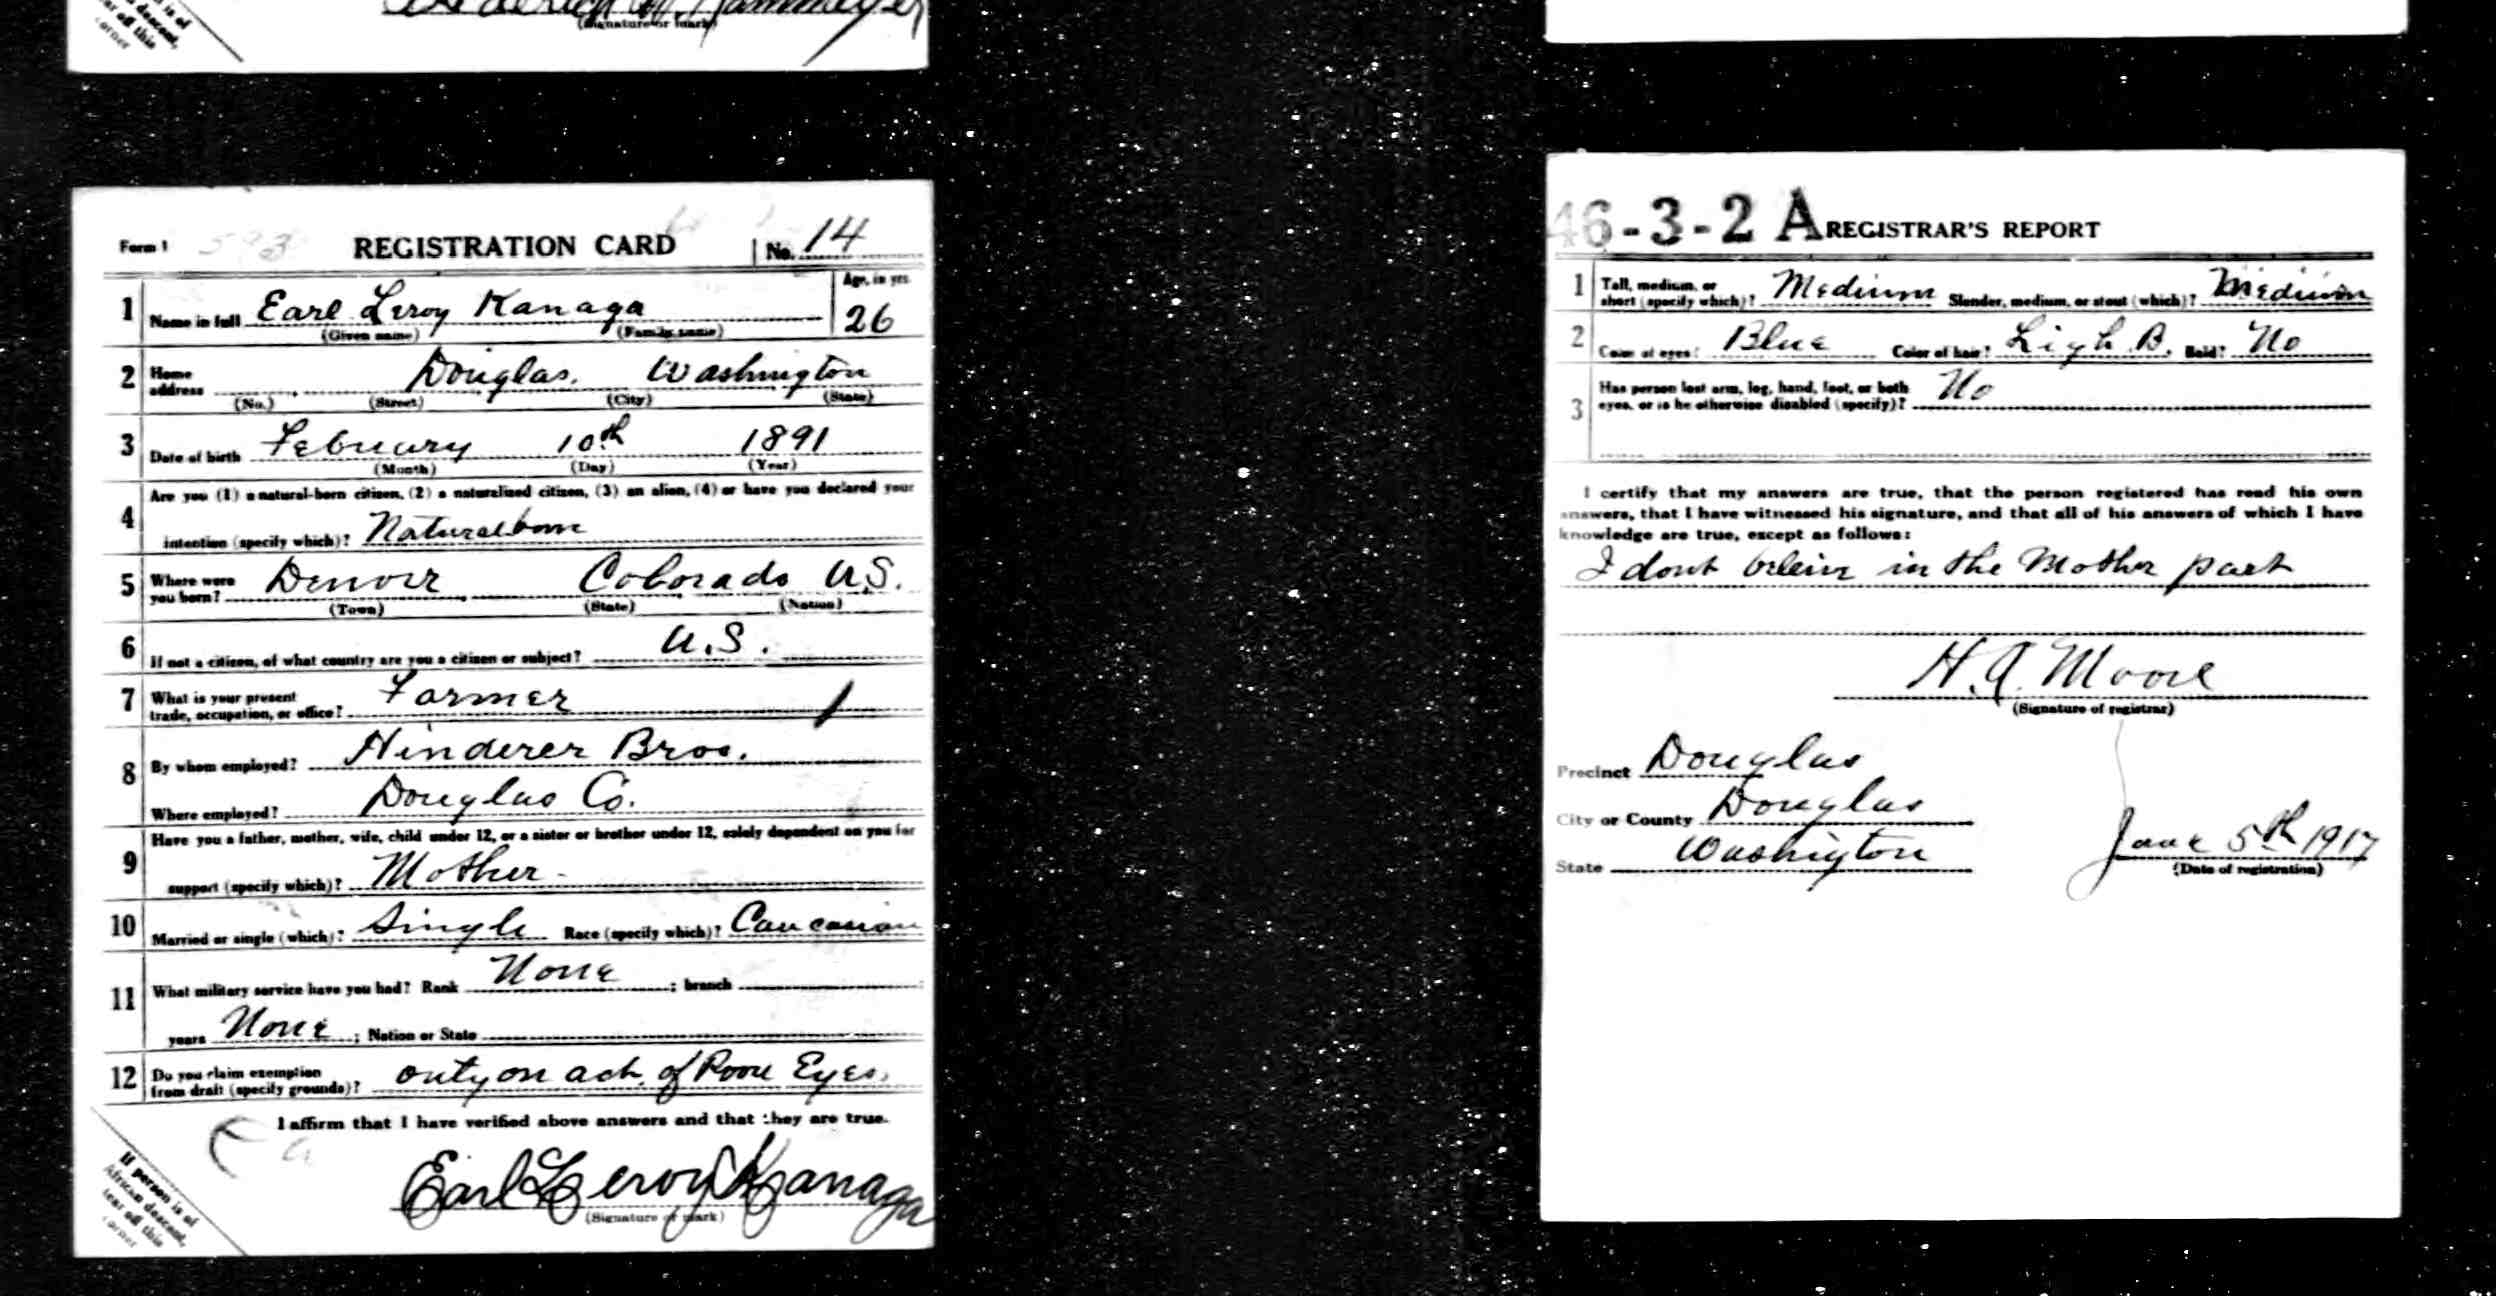 is of
descent,
off this
corner
(Signature or mark)
Form 1 REGISTRATION CARD No. 14
1 Name in full Earl Leroy Kanaga Age, in yrs. 26
(Given name) (Family name)
2 Home address Douglas. Washington
(No.) (Street) (City) (State)
3 Date of birth February 10th 1891
(Month) (Day) (Year)
Are you (1) a natural-born citizen, (2) a naturalized citizen, (3) an alien, (4) or have you declared your
4 intention (specify which)? Naturalborn
5 Where were you born? Denver Colorado U.S.
(Town) (State) (Nation)
6 If not a citizen, of what country are you a citizen or subject? U.S.
7 What is your present trade, occupation, or office? Farmer
8 By whom employed? Hinderer Bros.
Where employed? Douglas Co.
Have you a father, mother, wife, child under 12, or a sister or brother under 12, solely dependent on you for
9 support (specify which)? Mother-
10 Married or single (which)? Single Race (specify which)? Caucasian
11 What military service have you had? Rank None ; branch
years None ; Nation or State
12 Do you claim exemption from draft (specify grounds)? on act. of Poore Eyes.
I affirm that I have verified above answers and that they are true.
Earl Leroy Kanaga
(Signature or mark)
If person is of
African descent,
tear off this
corner
46-3-2 A REGISTRAR'S REPORT
1 Tall, medium, or short (specify which)? Medium Slender, medium, or stout (which)? Medium
2 Color of eyes? Blue Color of hair? Ligh B. Bald? No
3 Has person lost arm, leg, hand, foot, or both eyes, or is he otherwise disabled (specify)? No
I certify that my answers are true, that the person registered has read his own
answers, that I have witnessed his signature, and that all of his answers of which I have
knowledge are true, except as follows:
I dont beleive in the Mother part
H.A. Moore
(Signature of registrar)
Precinct Douglas
City or County Douglas
State Washigton
June 5th 1917
(Date of registration)